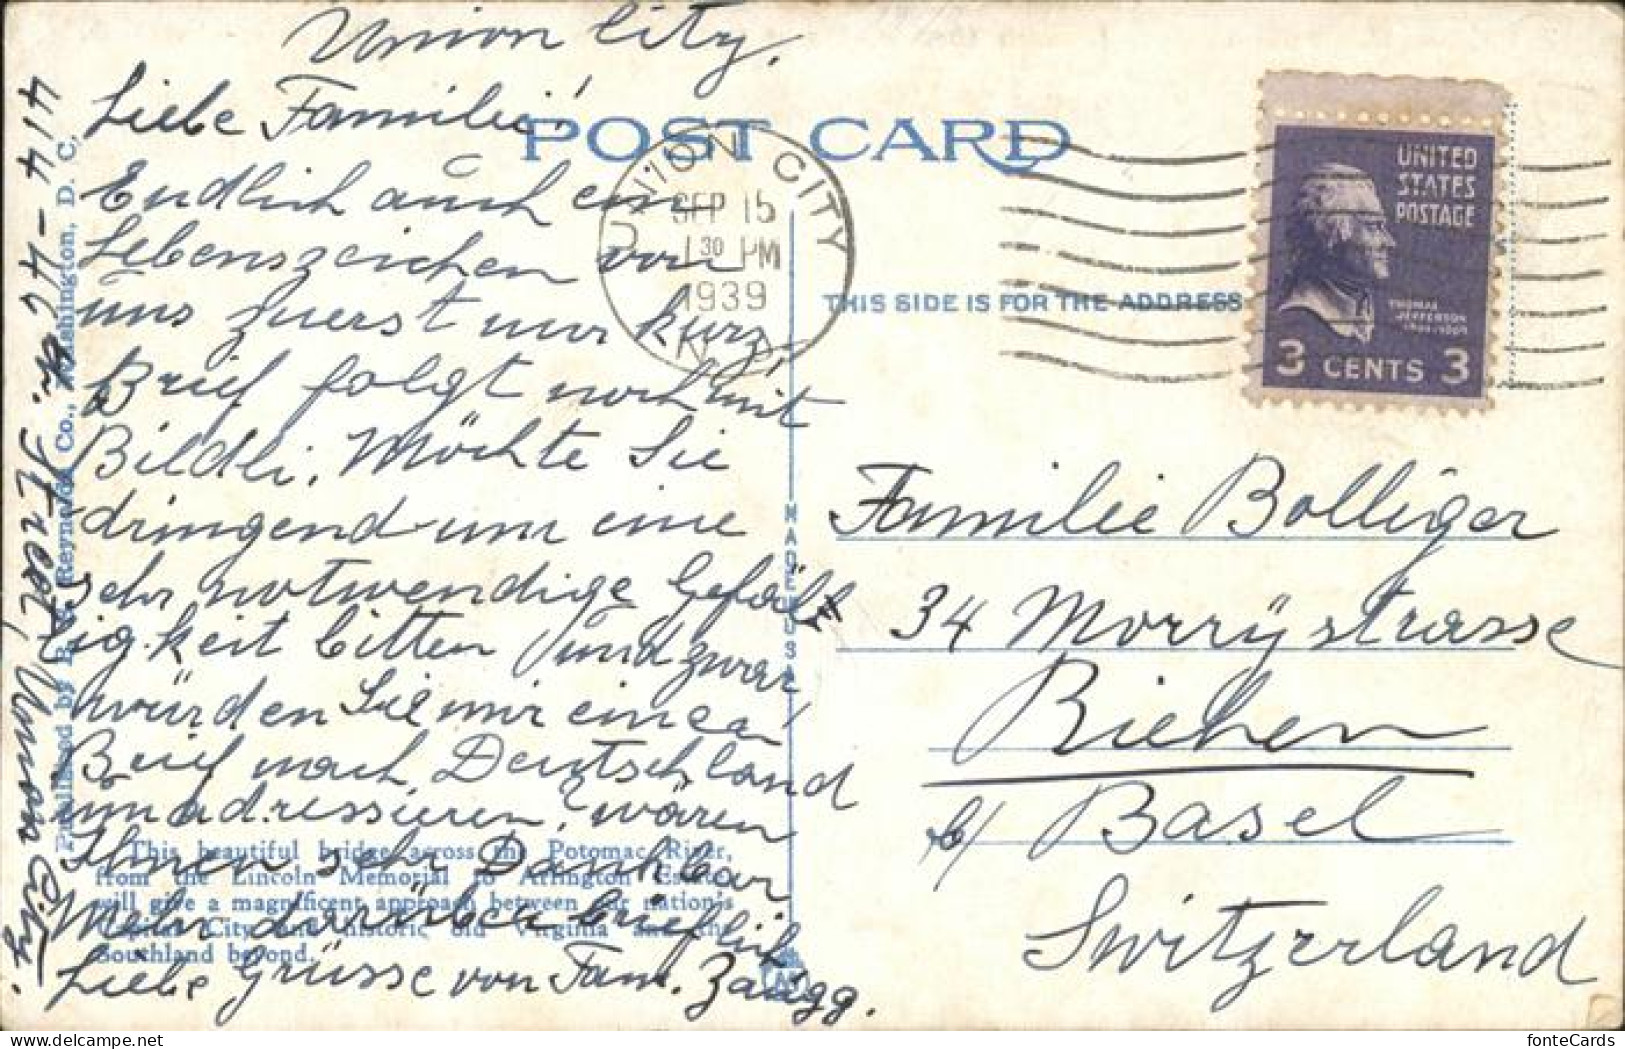 Union City.
Liebe Familie!
Endlich auch ein
Lebenszeichen von
uns zuerst nur kurz,
Brief folgt noch mit
Bildli. Möchte Sie
dringend um eine
sehr notwendige Gefäll
igkeit bitten und zwar
würden Sie mir einen
Brief nach Deutschland
umadressieren, wären
Ihnen sehr Dankbar
Mehr darüber brieflich
Liebe Grüsse von Fam. Zaugg.
414-46 Str. West, Union City.
Published by B. W. Reynolds Co., Washington, D. C.
POST CARD
UNION CITY
SEP 15
1 30 PM
1939
N. J.
THIS SIDE IS FOR THE ADDRESS
UNITED
STATES
POSTAGE
THOMAS
JEFFERSON
3 CENTS 3
MADE IN U S A
Familie Bolliger
34 Morrystrasse
Riehen
b/ Basel
Switzerland
This beautiful bridge across the Potomac River,
from the Lincoln Memorial to Arlington Estate,
will give a magnificent approach between our nation's
Capital City and historic old Virginia and the
Southland beyond.
fonteCards